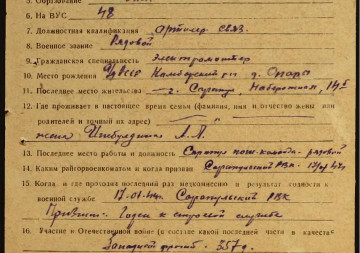 5. Образование
6. На ВУС 48
7. Должностная квалификация артилер. связ.
8. Военное звание Рядовой
9. Гражданская специальность Электромонтер
10. Место рождения Камбарский р-н д.
11. Последнее место жительства г. Сарапул Набережная,
12. Где проживает в настоящее время семья (фамилия, имя и отчество жены или
родителей и точный их адрес)
жена Л. А.
13. Последнее место работы и должность Сарапул рядовой
14. Каким райгорвоенкоматом и когда призван Сарапульский РВК
13. Когда и где проходил последний раз медкомиссию в результат годности к
военной службе 17.01.44г Сарапульский РВК
Годен к строевой службе
16. Участие в Отечественной войне (в составе какой последней части в качестве
Западный фронт - 357 д.